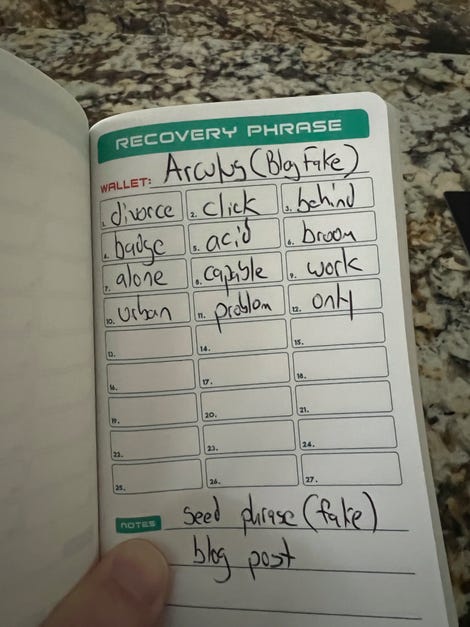 RECOVERY PHRASE
WALLET: Arculus (Blog Fake)
1. divorce 2. click 3. behind
4. badge 5. acid 6. broom
7. alone 8. capable 9. work
10. urban 11. problem 12. only
13. 14. 15.
16. 17. 18.
19. 20. 21.
22. 23. 24.
25. 26. 27.
NOTES seed phrase (fake)
blog post